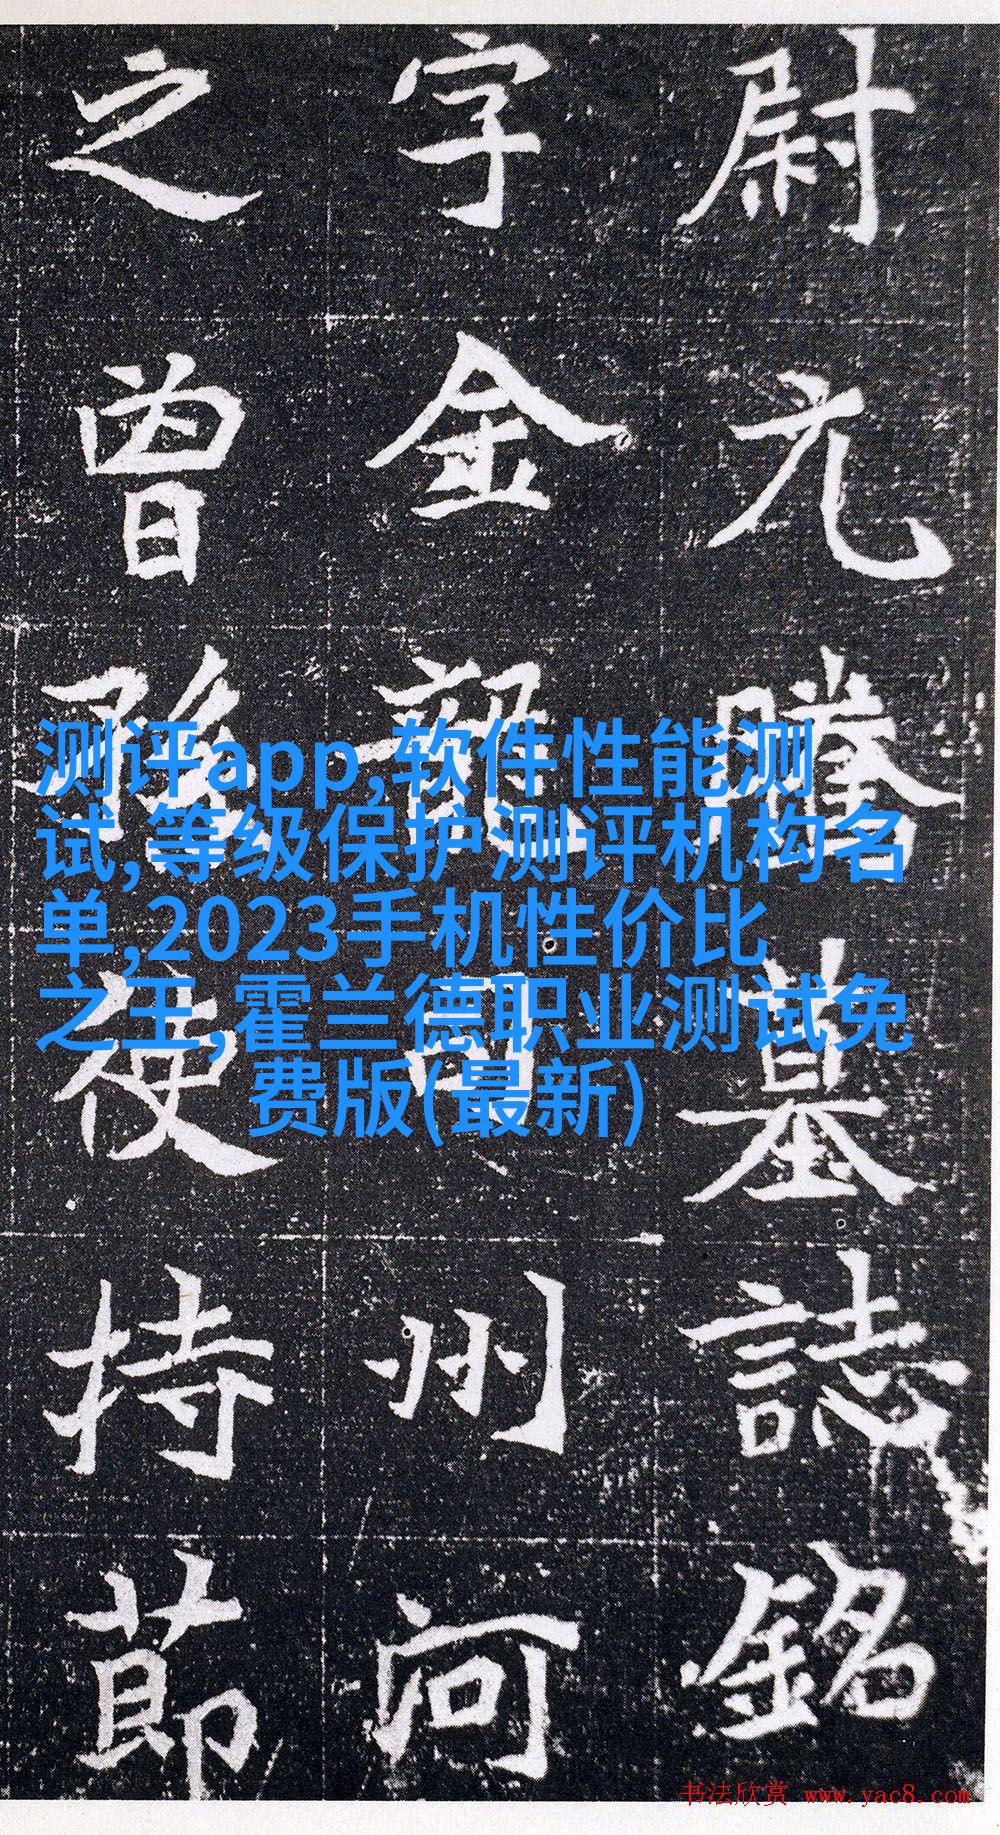 尉元騰墓誌銘
字金龍司州河
之曾孫使持莭
测评app,软件性能测
试,等级保护测评机构名
单,2023手机性价比
之王,霍兰德职业测试免
费版(最新)
书法欣赏 www.yac8.com